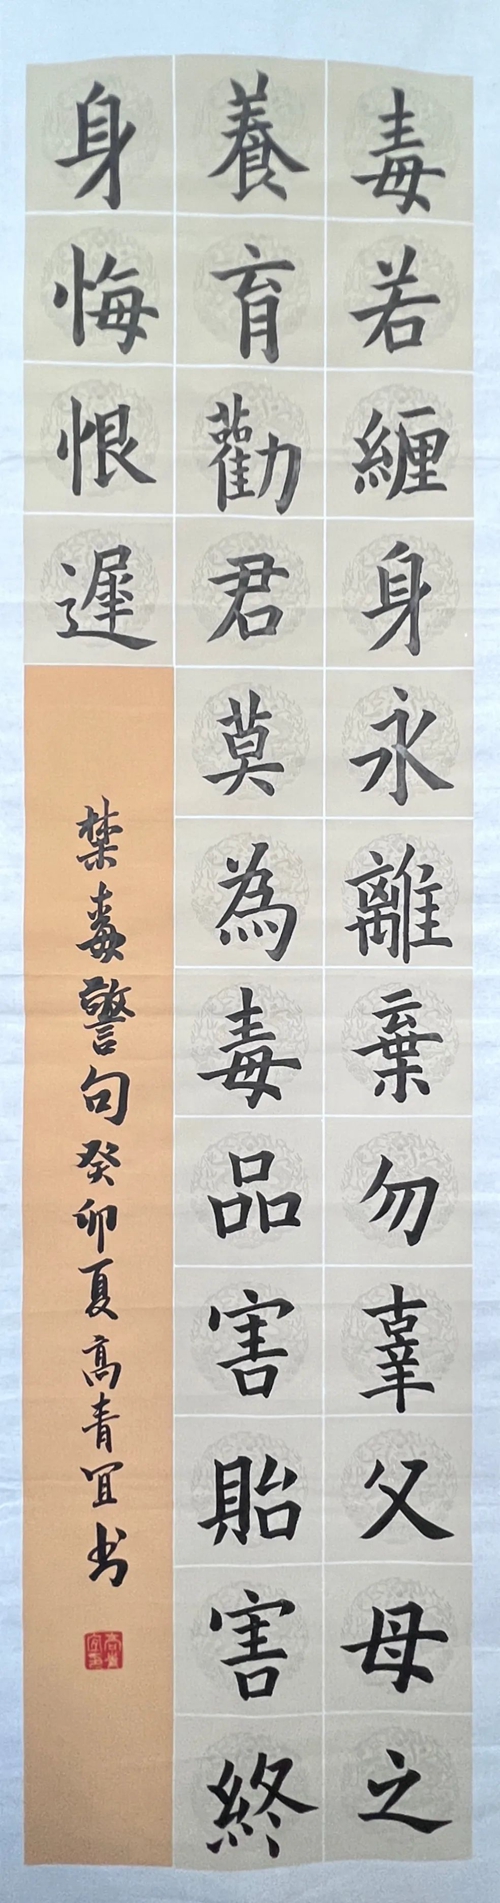 毒若纏身永離棄勿辜父母之
養育勸君莫為毒品害貽害終
身悔恨遲
禁毒警句癸卯夏高青宜书